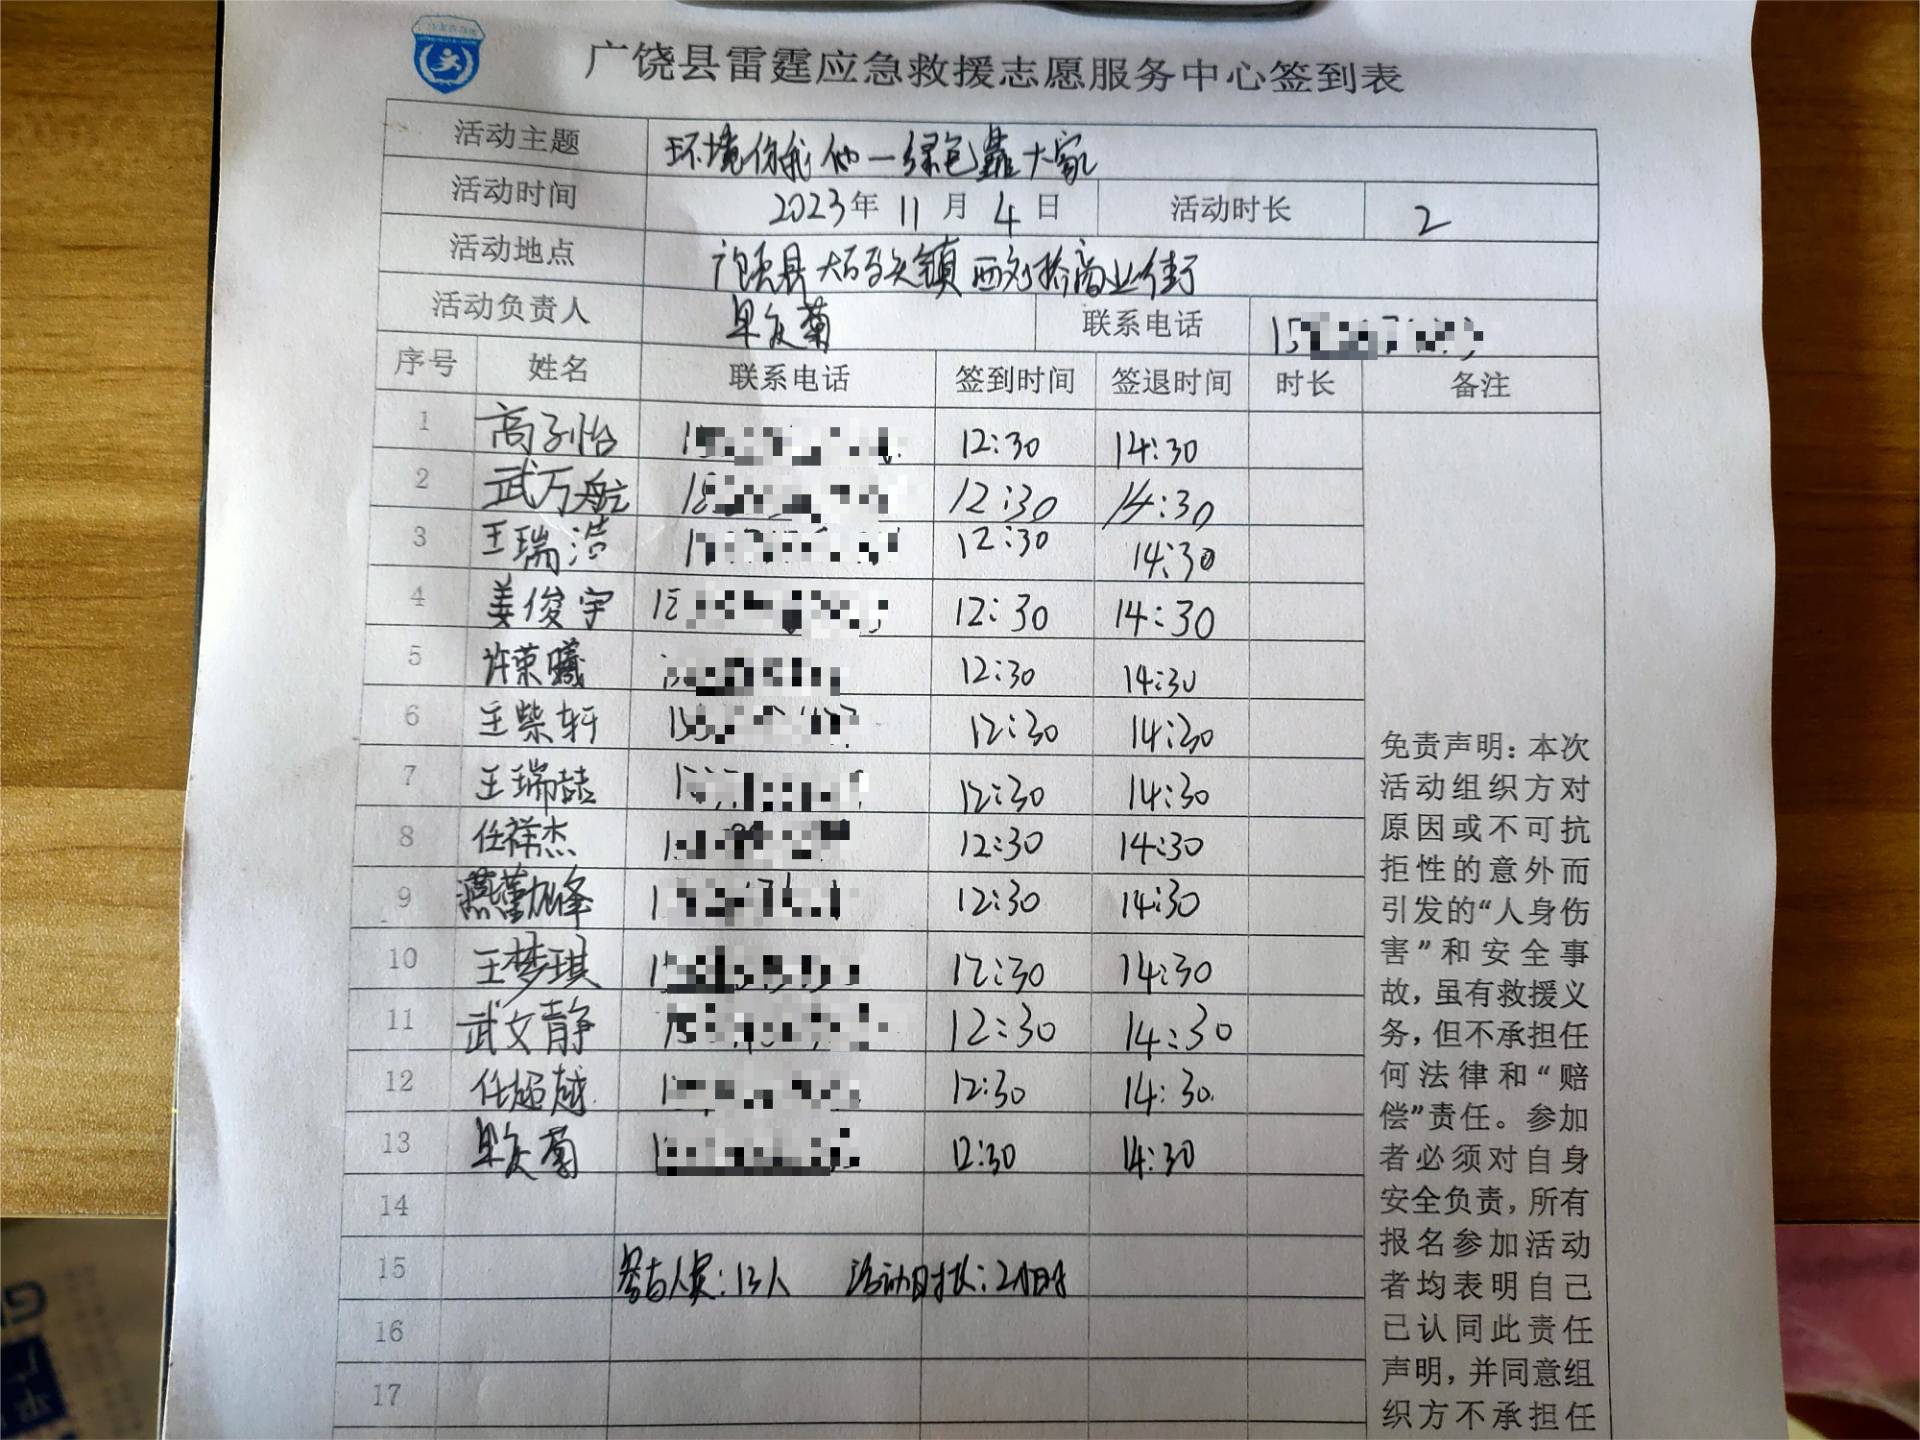 广饶县雷霆应急救援志愿服务中心签到表
活动主题 环境你我他一绿色靠大家
活动时间 2023年 11月 4日 活动时长 2
活动地点 广饶县大码头镇西刘桥商业街
活动负责人 联系电话 15
序号 姓名 联系电话 签到时间 签退时间 时长 备注
1 高子怡 12:30 14:30
2 武万航 12:30 14:30
3 王瑞浩 12:30 14:30
4 姜俊宇 12:30 14:30
5 许荣曦 12:30 14:30
6 王柴轩 12:30 14:30
7 王瑞喆 12:30 14:30
8 任祥杰 12:30 14:30
9 燕勤峰 12:30 14:30
10 王梦琪 12:30 14:30
11 武文静 12:30 14:30
12 任超越 12:30 14:30
13 12:30 14:30
14
15 参与人员：13人 活动时长：2小时
16
17
免责声明：本次
活动组织方对
原因或不可抗
拒性的意外而
引发的“人身伤
害”和安全事
故，虽有救援义
务，但不承担任
何法律和“赔
偿”责任。参加
者必须对自身
安全负责，所有
报名参加活动
者均表明自己
已认同此责任
声明，并同意组
织方不承担任